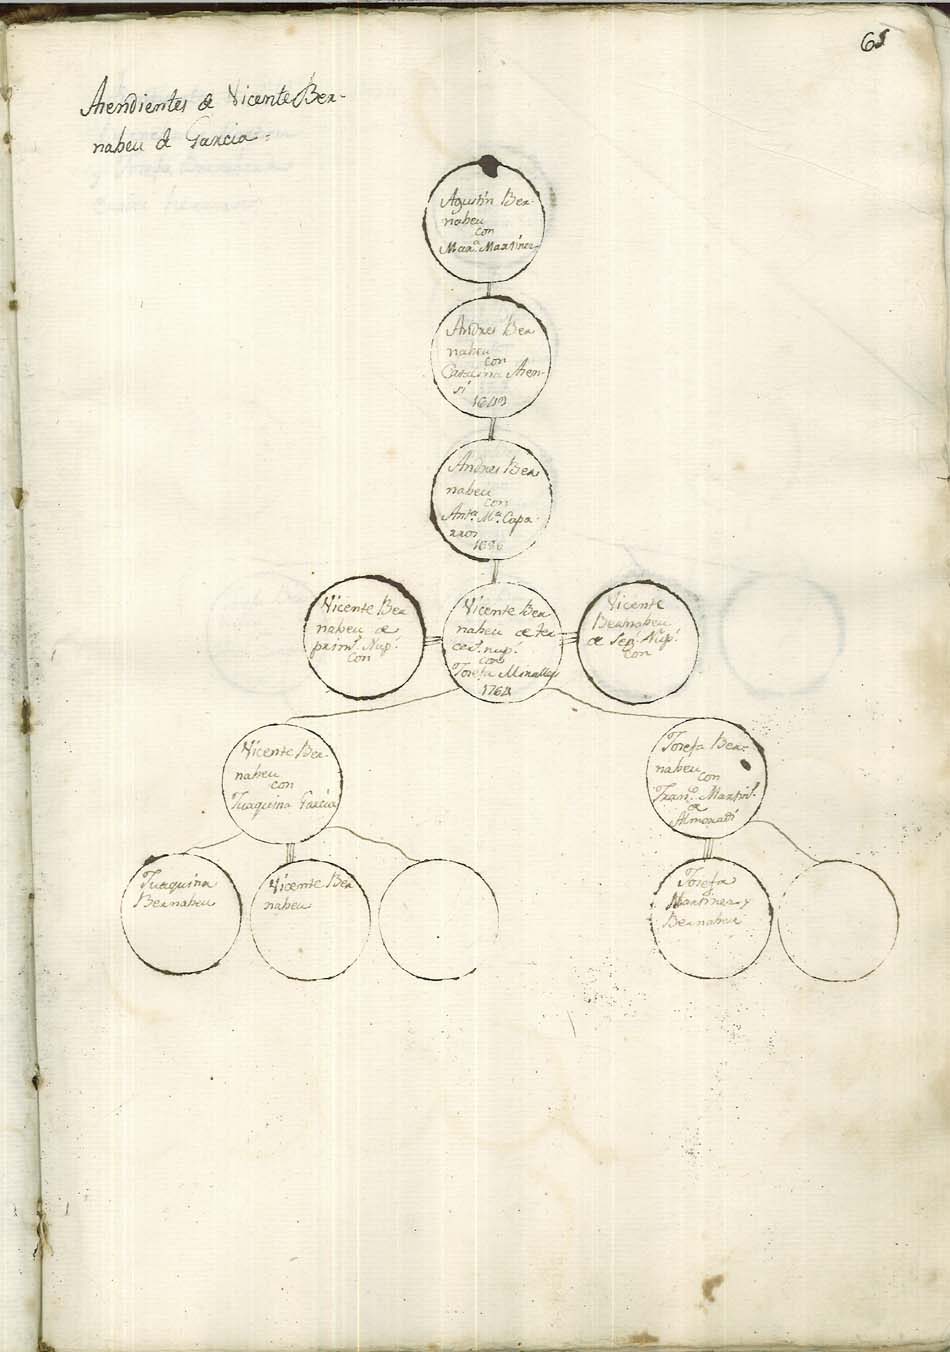 65
Asendientes de Vicente Ber-
nabeu de Garcia.
Agustin Ber-
nabeu
con
Mar.a Martinez
Andres Ber
nabeu
con
Catalina Asen-
si
Andres Ber
nabeu
con
Ant.a M.a Capa-
rros
1696
Vicente Ber
nabeu de
prim.s Nup.s
con
Vicente Ber
nabeu de ter
cer.s nup.s
con
Josefa Miralles
1764
Vicente
Bernabeu
de Seg.s Nup.s
con
Vicente Ber-
nabeu
con
Juaquina Garcia
Josefa Ber-
nabeu
con
Fran.co Martin.z
de
Almoradi
Juaquina
Bernabeu
Vicente Ber
nabeu
Josefa
Martinez y
Bernabeu